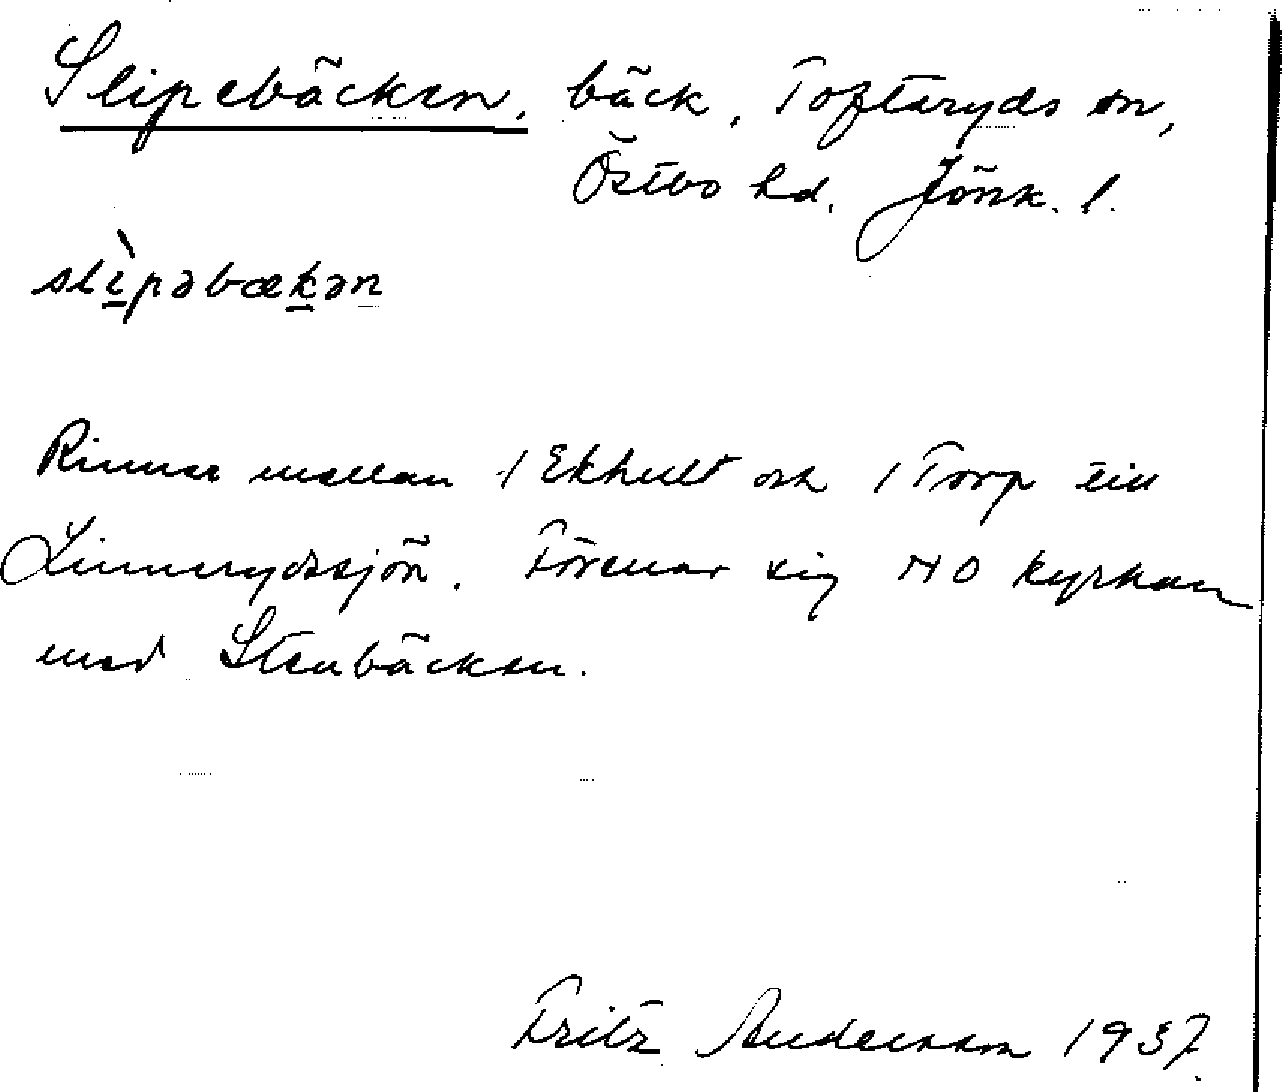 Slipebäcken, bäck, Tofteryds sn,
Östbo hd. Jönk. l.
slìpəbækən
Rinner mellan /Ekhult och /Torp till
Linnerydssjön. Förenar sig NO kyrkan
med Stenbäcken.
Fritz Andersson 1937.